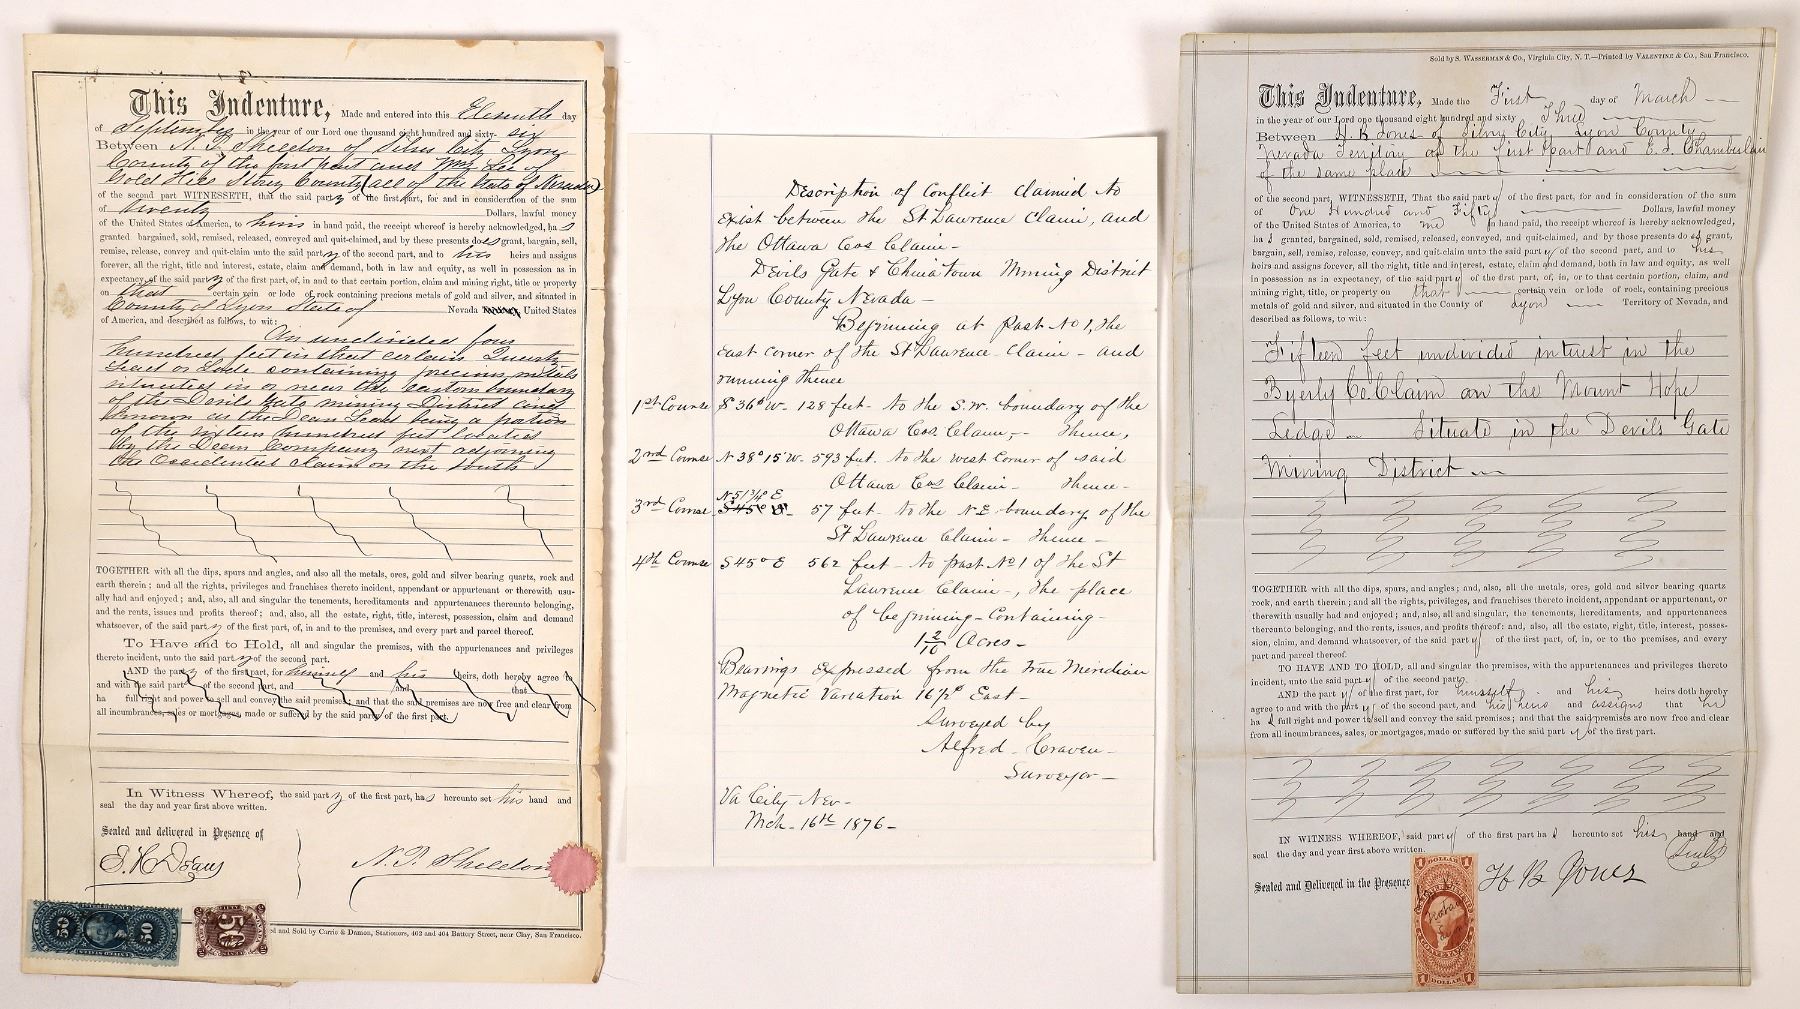 This Indenture, Made and entered into this Eleventh day
of September in the year of our Lord one thousand eight hundred and sixty-six
Between N. P. Sheldon of Silver City Lyon
County of the first part and Wm Lee of
Gold Hill Storey County (all of the State of Nevada)
of the second part WITNESSETH, that the said party of the first part, for and in consideration of the sum
of Twenty Dollars, lawful money
of the United States of America, to him in hand paid, the receipt whereof is hereby acknowledged, has
granted bargained, sold, remised, released, conveyed and quit-claimed, and by these presents does grant, bargain, sell,
remise, release, convey and quit-claim unto the said party of the second part, and to his heirs and assigns
forever, all the right, title and interest, estate, claim and demand, both in law and equity, as well in possession as in
expectancy, of the said party of the first part, of, in and to that certain portion, claim and mining right, title or property
on that certain vein or lode of rock containing precious metals of gold and silver, and situated in
County of Lyon State of Nevada United States
of America, and described as follows, to wit:
An undivided four
hundred feet in that certain Quartz
Lead or Lode containing precious metals
situated in or near the eastern boundary
of the Devils Gate mining District and
known as the Dean Lead being a portion
of the sixteen hundred feet located
by the Dean Company next adjoining
the Occidental claim on the South
TOGETHER with all the dips, spurs and angles, and also all the metals, ores, gold and silver bearing quartz, rock and
earth therein; and all the rights, privileges and franchises thereto incident, appendant or appurtenant or therewith usu-
ally had and enjoyed; and, also, all and singular the tenements, hereditaments and appurtenances thereunto belonging,
and the rents, issues and profits thereof; and, also, all the estate, right, title, interest, possession, claim and demand
whatsoever, of the said party of the first part, of, in and to the premises, and every part and parcel thereof.
To Have and to Hold, all and singular the premises, with the appurtenances and privileges
thereto incident, unto the said party of the second part.
AND the party of the first part, for himself and his heirs, doth hereby agree to
and with the said part of the second part, and and that
ha full right and power to sell and convey the said premises; and that the said premises are now free and clear from
all incumbrances, sales or mortgages, made or suffered by the said part of the first part.
In Witness Whereof, the said party of the first part, has hereunto set his hand and
seal the day and year first above written.
Sealed and delivered in Presence of
N. P. Sheldon
50 50
50
ed and Sold by Currie & Damon, Stationers, 402 and 404 Battery Street, near Clay, San Francisco.
Description of Conflict claimed to
exist between the St Lawrence Claim, and
the Ottawa Cos Claim -
Devils Gate & Chinatown Mining District
Lyon County Nevada -
Beginning at Post No 1, the
east corner of the St Lawrence Claim - and
running thence
1st Course S 36° W - 128 feet - to the S.W. boundary of the
Ottawa Cos. Claim, - thence,
2nd Course N 38° 15' W. 593 feet. to the west corner of said
Ottawa Cos Claim - thence -
N 51 3/4° E
3rd Course S 45° E - 57 feet - to the N.E. boundary of the
St Lawrence Claim - thence -
4th Course S 45° E 562 feet - to post No 1 of the St
Lawrence Claim -, the place
of beginning - Containing -
1 2/10 Acres -
Bearings expressed from the true Meridian
Magnetic Variation 16 1/2° East -
Surveyed by
Alfred - Craven -
Surveyor -
Va City Nev -
Mch - 16th 1876 -
Sold by S. WASSERMAN & Co., Virginia City, N. T.—Printed by VALENTINE & Co., San Francisco.
This Indenture, Made the First day of March
in the year of our Lord one thousand eight hundred and sixty Third
Between H. B Jones of Silver City, Lyon County
Nevada Territory of the first part and E. S. Chamberlain
of the same place
of the second part, WITNESSETH, That the said party of the first part, for and in consideration of the sum
of One Hundred and Fifty Dollars, lawful money
of the United States of America, to me in hand paid, the receipt whereof is hereby acknowledged,
had granted, bargained, sold, remised, released, conveyed, and quit-claimed, and by these presents do es grant,
bargain, sell, remise, release, convey, and quit-claim unto the said party of the second part, and to his
heirs and assigns forever, all the right, title and interest, estate, claim and demand, both in law and equity, as well
in possession as in expectancy, of the said party of the first part, of, in, or to that certain portion, claim, and
mining right, title, or property on that certain vein or lode of rock, containing precious
metals of gold and silver, and situated in the County of Lyon Territory of Nevada, and
described as follows, to wit:
Fifteen feet undivided intrest in the
Byerly Co. Claim on the Mount Hope
Ledge - Situate in the Devils Gate
Mining District
TOGETHER with all the dips, spurs, and angles; and, also, all the metals, ores, gold and silver bearing quartz
rock, and earth therein; and all the rights, privileges, and franchises thereto incident, appendant or appurtenant, or
therewith usually had and enjoyed; and, also, all and singular, the tenements, hereditaments, and appurtenances
thereunto belonging, and the rents, issues, and profits thereof: and, also, all the estate, right, title, interest, posses-
sion, claim, and demand whatsoever, of the said party of the first part, of, in, or to the premises, and every
part and parcel thereof.
TO HAVE AND TO HOLD, all and singular the premises, with the appurtenances and privileges thereto
incident, unto the said party of the second party.
AND the party of the first part, for himself and his heirs doth hereby
agree to and with the party of the second part, and his heirs and assigns that he
ha d full right and power to sell and convey the said premises; and that the said premises are now free and clear
from all incumbrances, sales, or mortgages, made or suffered by the said party of the first part.
IN WITNESS WHEREOF, said party of the first part had hereunto set his hand and
seal the day and year first above written.
Sealed and Delivered in the Presence
H B Jones
Seal
1 DOLLAR 1
1 DOLLAR 1